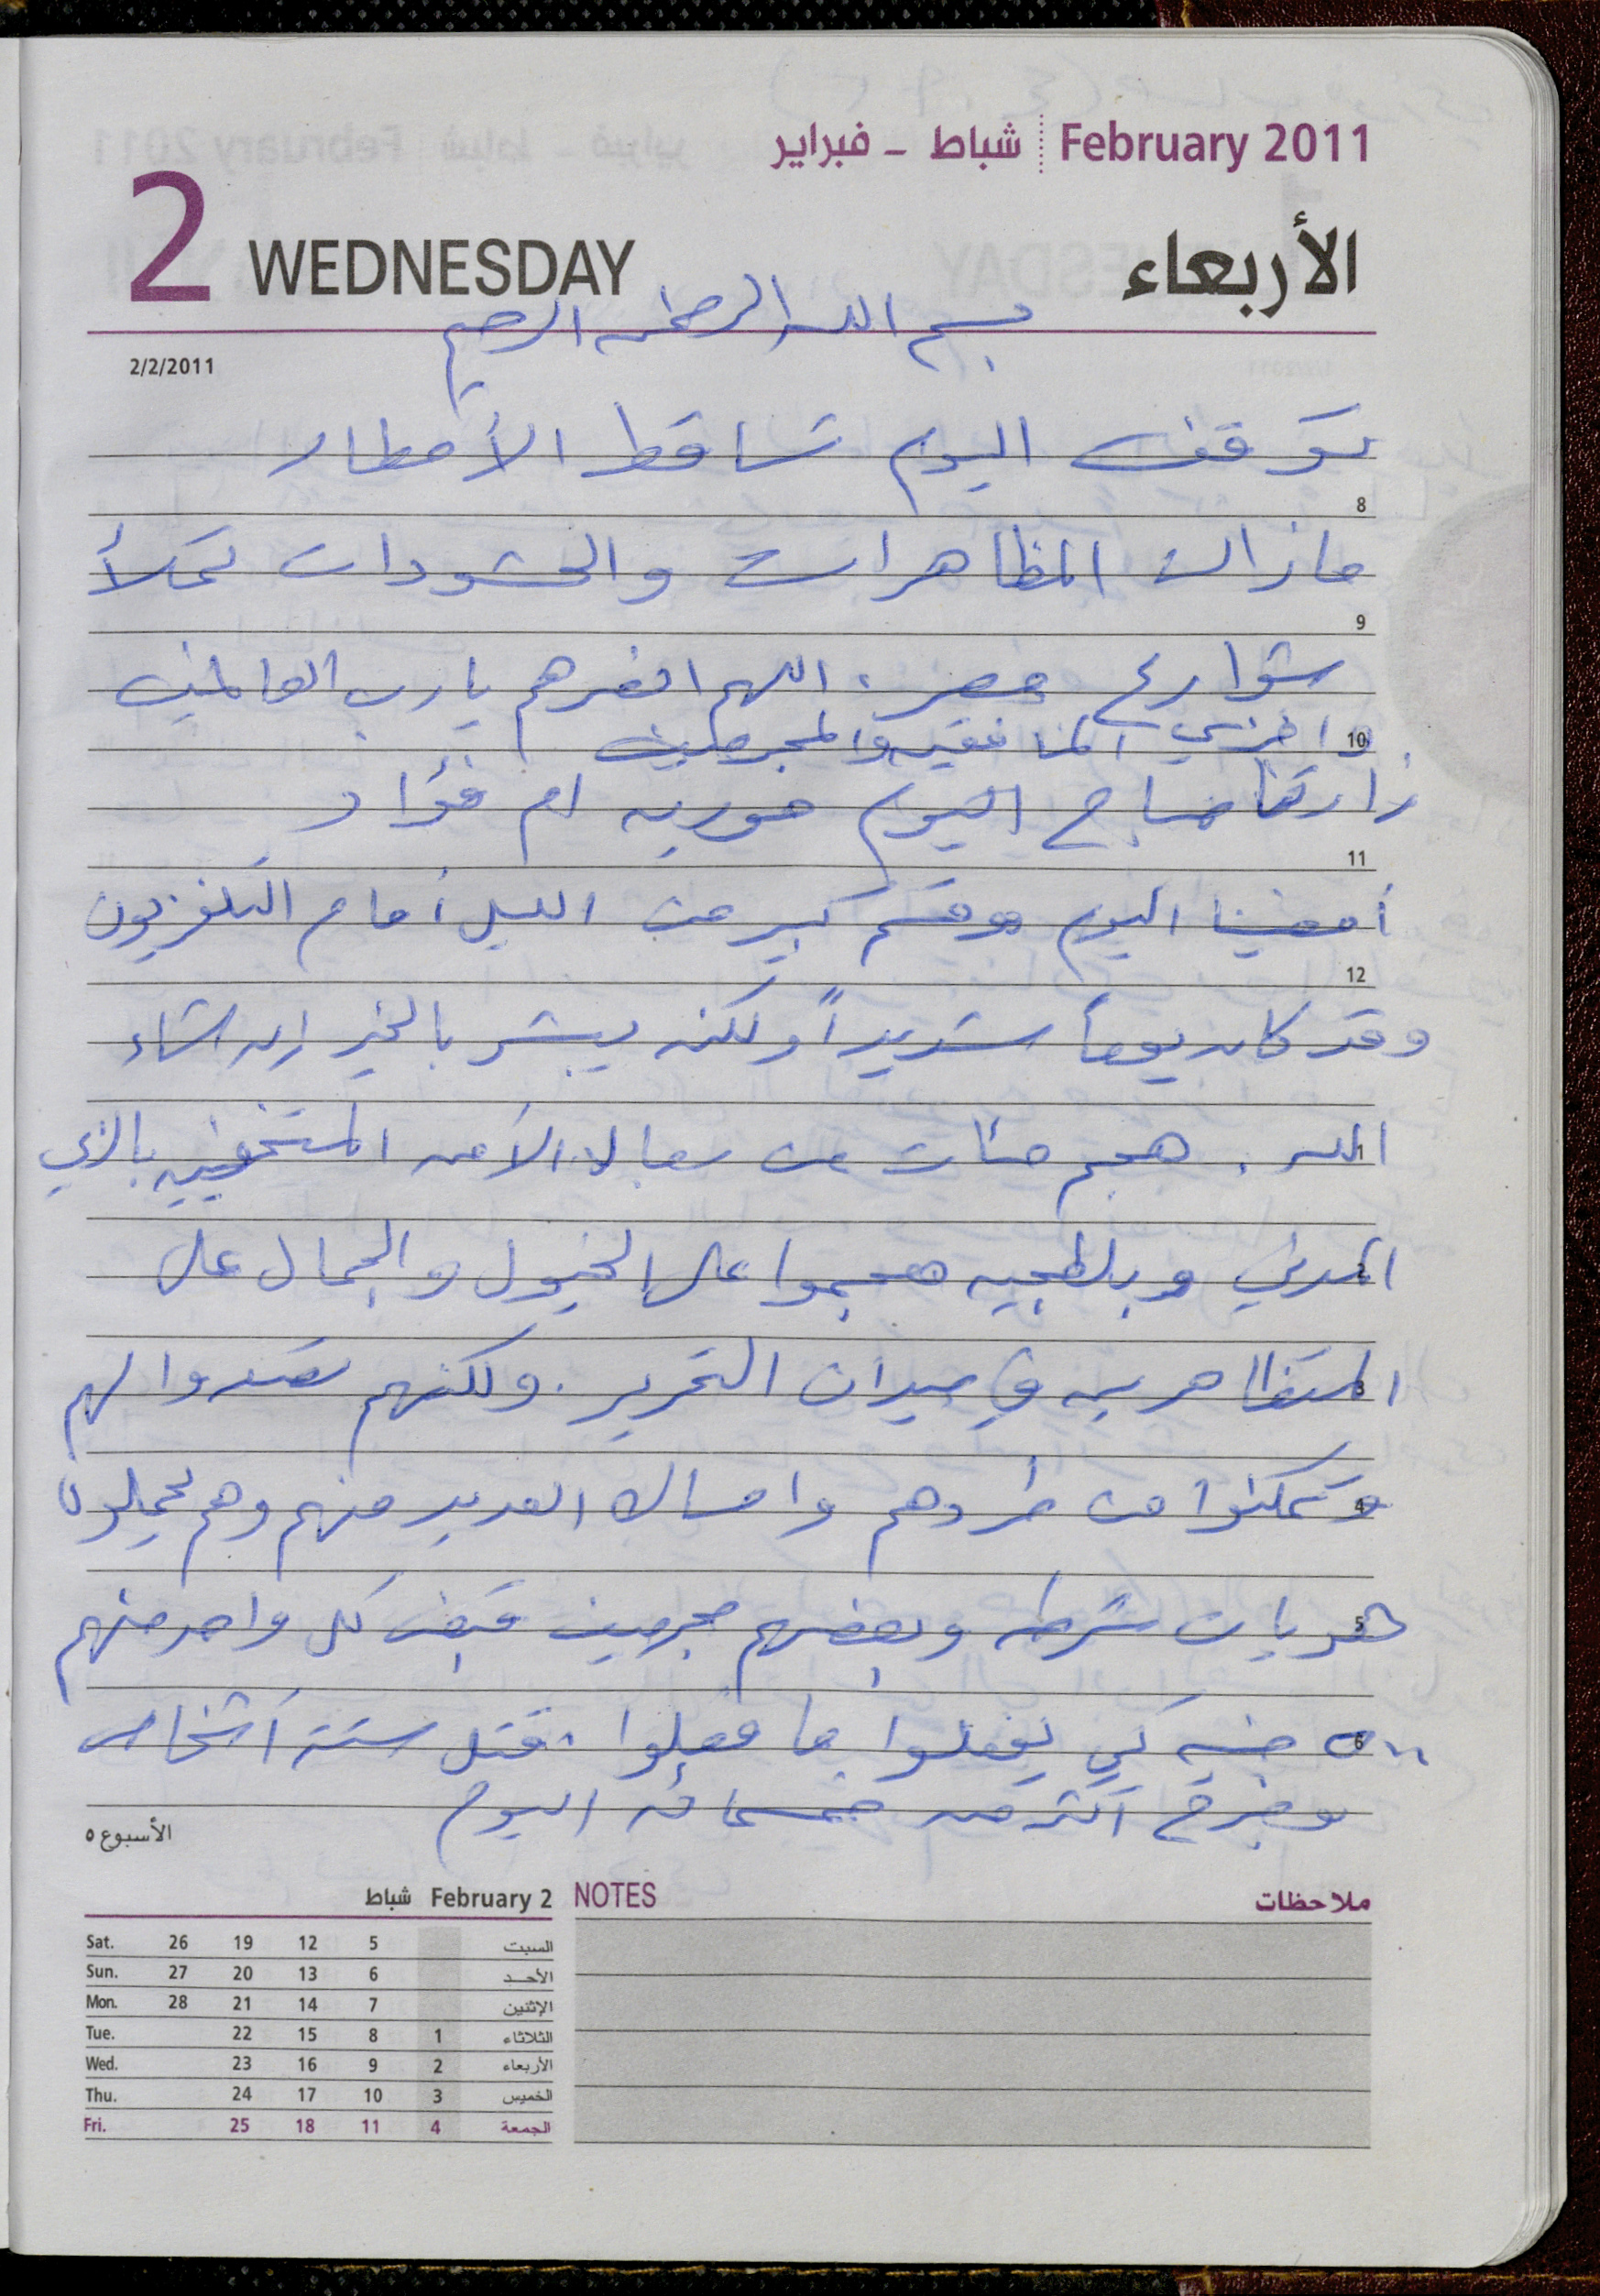 شباط - فبراير February 2011
2 WEDNESDAY الأربعاء
بسم الله الرحمن الرحيم
2/2/2011
توقف اليوم تساقط الأمطار
8
مازالت المظاهرات والحشودات تملأ
9
شوارع مصر. اللهم انصرهم يا رب العالمين
10 واخزي المنافقين والمجرمين
زارتنا صباح اليوم حوريه ام فؤاد
11
أمضينا اليوم وقسم كبير من الليل أمام التلفزيون
12
وقد كان يوماً شديداً ولكنه يبشر بالخير إن شاء
الله. هجم مئات من رجال الأمن المتخفيين بالزي
المدني وبلطجيه هجموا على الخيول والجمال على
المتظاهرين في ميدان التحرير. ولكنهم تصدوا لهم
وتمكنوا من طردهم وامساك العديد منهم وهم يحملون
هويات شرطه وبعضهم مجرمين قبض كل واحد منهم
٥٠٠ جنيه كي يفعلوا ما فعلوا. قتل ستة أشخاص
وجرح أكثر من خمسمائه اليوم
الأسبوع ٥
شباط February 2
Sat. 26 19 12 5 السبت
Sun. 27 20 13 6 الأحد
Mon. 28 21 14 7 الإثنين
Tue. 22 15 8 1 الثلاثاء
Wed. 23 16 9 2 الأربعاء
Thu. 24 17 10 3 الخميس
Fri. 25 18 11 4 الجمعة
NOTES ملاحظات